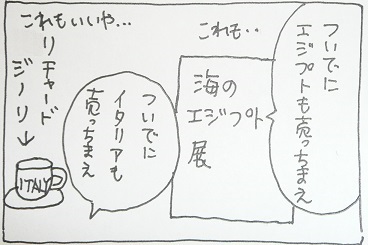 ついでに
エジプトも売っちまえ
これも・・
海の
エジプト
展
ついでに
イタリアも
売っちまえ
これもいいや…
リチャード
ジノリ→
ITALY